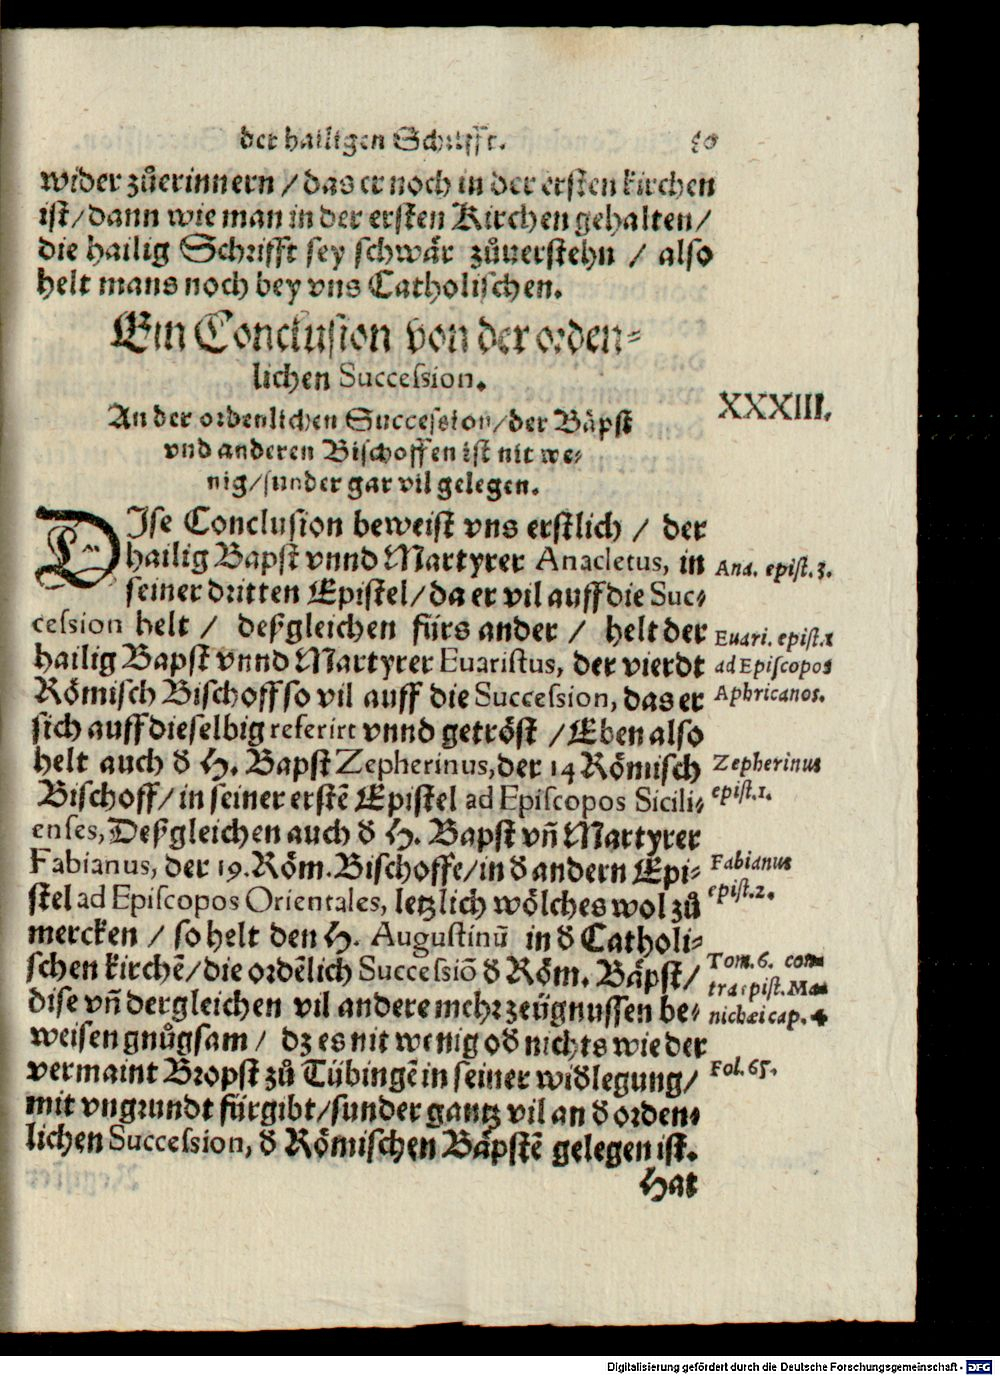 der hailigen Schrifft. 60
wider zůerinnern / das er noch in der ersten kirchen
ist / dann wie man in der ersten Kirchen gehalten /
die hailig Schrifft sey schwär zůuerstehn / also
helt mans noch bey vns Catholischen.
Ein Conclusion von der orden-
lichen Succession.
XXXIII.
An der ordenlichen Succession / der Bäpst
vnd anderen Bischoffen ist nit we-
nig / sunder gar vil gelegen.
DIse Conclusion beweist vns erstlich / der
hailig Bapst vnnd Martyrer Anacletus, in
Ana. epist. 3.
seiner dritten Epistel / da er vil auff die Suc-
cession helt / deßgleichen fürs ander / helt der
Euari. epist. 1
hailig Bapst vnnd Martyrer Euaristus, der vierdt
ad Episcopos
Römisch Bischoff so vil auff die Succession, das er
Aphricanos.
sich auff dieselbig referirt vnnd getröst / Eben also
helt auch d̕ H. Bapst Zepherinus, der 14 Römisch
Zepherinus
Bischoff / in seiner erstē Epistel ad Episcopos Sicili-
epist. 1.
enses, Deßgleichen auch d̕ H. Bapst vñ Martyrer
Fabianus, der 19. Röm. Bischoffe / in d̕ andern Epi-
Fabianus
stel ad Episcopos Orientales, letzlich wölches wol zů
epist. 2.
mercken / so helt den H. Augustinū in d̕ Catholi-
schen kirchē / die ordēlich Successiō d̕ Röm. Bäpst /
Tom. 6. con-
tra epist. Ma-
dise vñ dergleichen vil andere mehr zeügnussen be-
nichæi cap. 4
weisen gnůgsam / dz es nit wenig od̕ nichts wie der
vermaint Bropst zů Tübingē in seiner wid̕legung /
Fol. 65.
mit vngrundt fürgibt / sunder gantz vil an d̕ orden-
lichen Succession, d̕ Römischen Bäpstē gelegen ist.
Hat
Digitalisierung gefördert durch die Deutsche Forschungsgemeinschaft - DFG